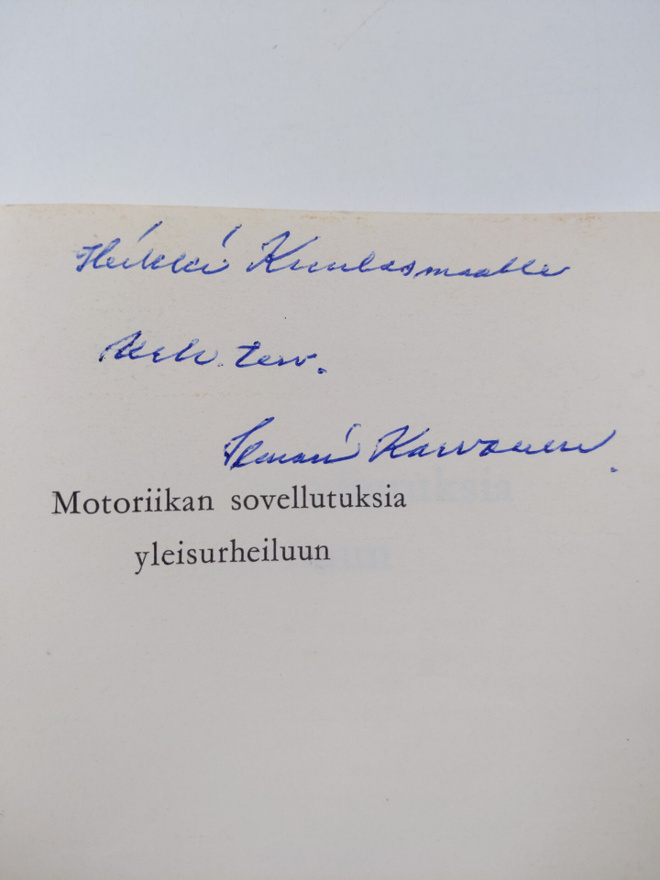 Heikki Kuulasmaalle
terv.
Ilmari Karvonen
Motoriikan sovellutuksia
yleisurheiluun